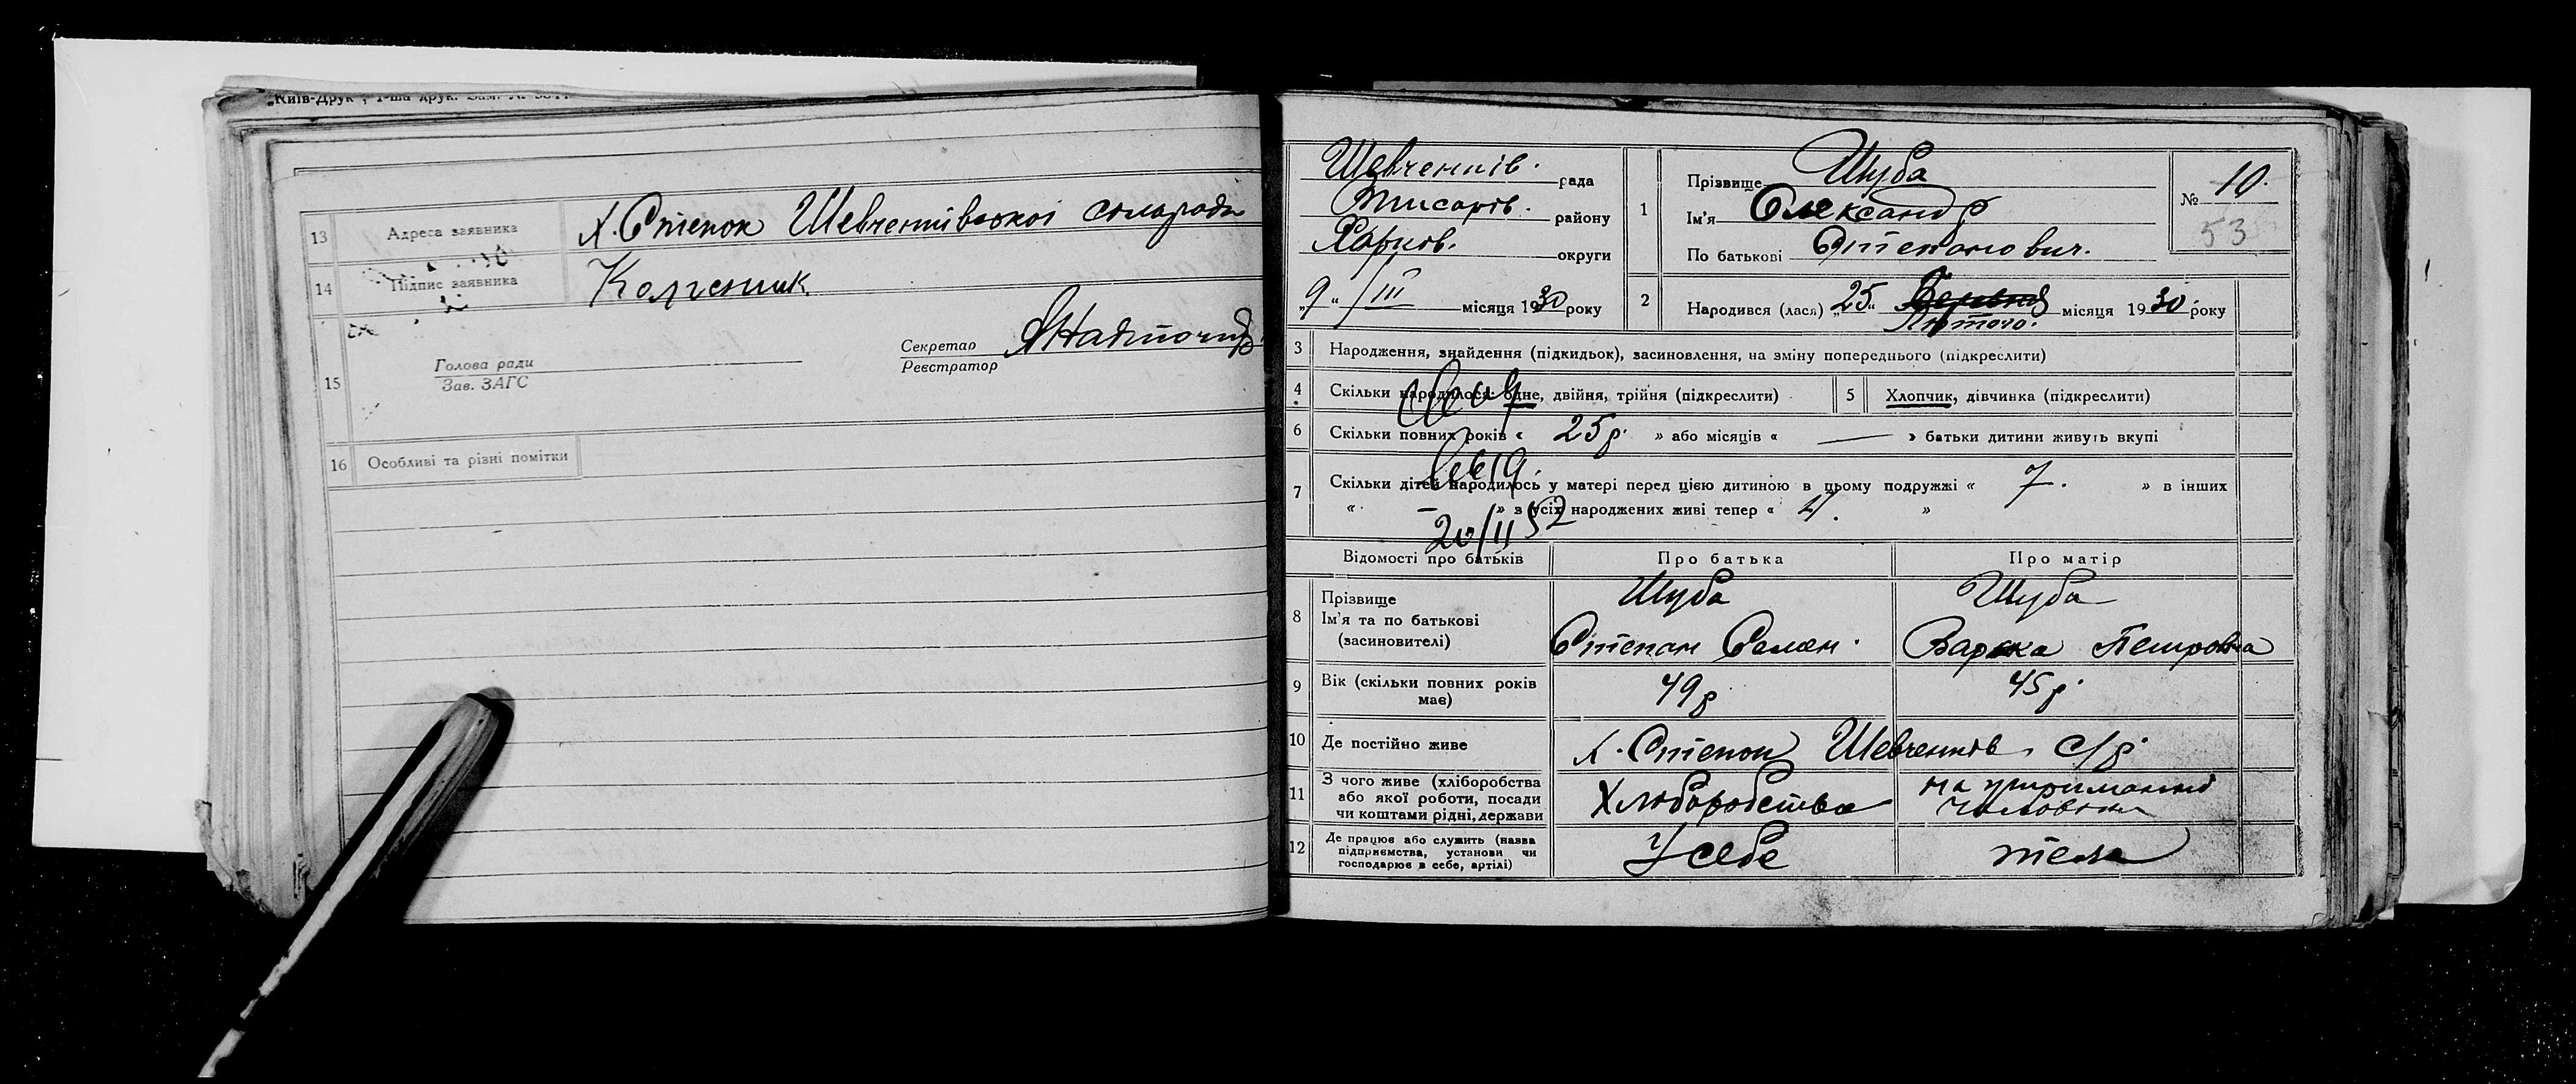 13 Адреса заявника Х. Степок Шевченківської сільради
14 Підпис заявника
15 Голова ради
Зав. ЗАГС
Секретар
Реєстратор
16 Особливі та різні помітки
Шевченків. рада
району
Харков. округи
„9“ /III місяця 1930 року
1 Прізвище Шуба
Ім'я Олександр
По батькові Степанович.
№ 10.
53
2 Народився (лася) „25“ Березня Лютого. місяця 1930 року
3 Народження, знайдення (підкидьок), засиновлення, на зміну попереднього (підкреслити)
4 Скільки народилося: одне, двійня, трійня (підкреслити)
5 Хлопчик, дівчинка (підкреслити)
6 Скільки повних років « 25 р. » або місяців « — » батьки дитини живуть вкупі
7 Скільки дітей народилось у матері перед цією дитиною в цьому подружжі « 7. » в інших
« — » з усіх народжених живі тепер « 4. »
20/II 52
Відомості про батьків Про батька Про матір
8 Прізвище Шуба Шуба
Ім'я та по батькові
(засиновителі) Степан Семен. Варка Петровна
9 Вік (скільки повних років має) 49 р 45 р.
10 Де постійно живе х. Степок Шевченків. с/р.
11 З чого живе (хліборобства
або якої роботи, посади
чи коштами рідні, держави Хліборобства на утриманні чоловіка
12 Де працює або служить (назва
підприємства, установи чи
господарює в себе, артілі) У себе теж